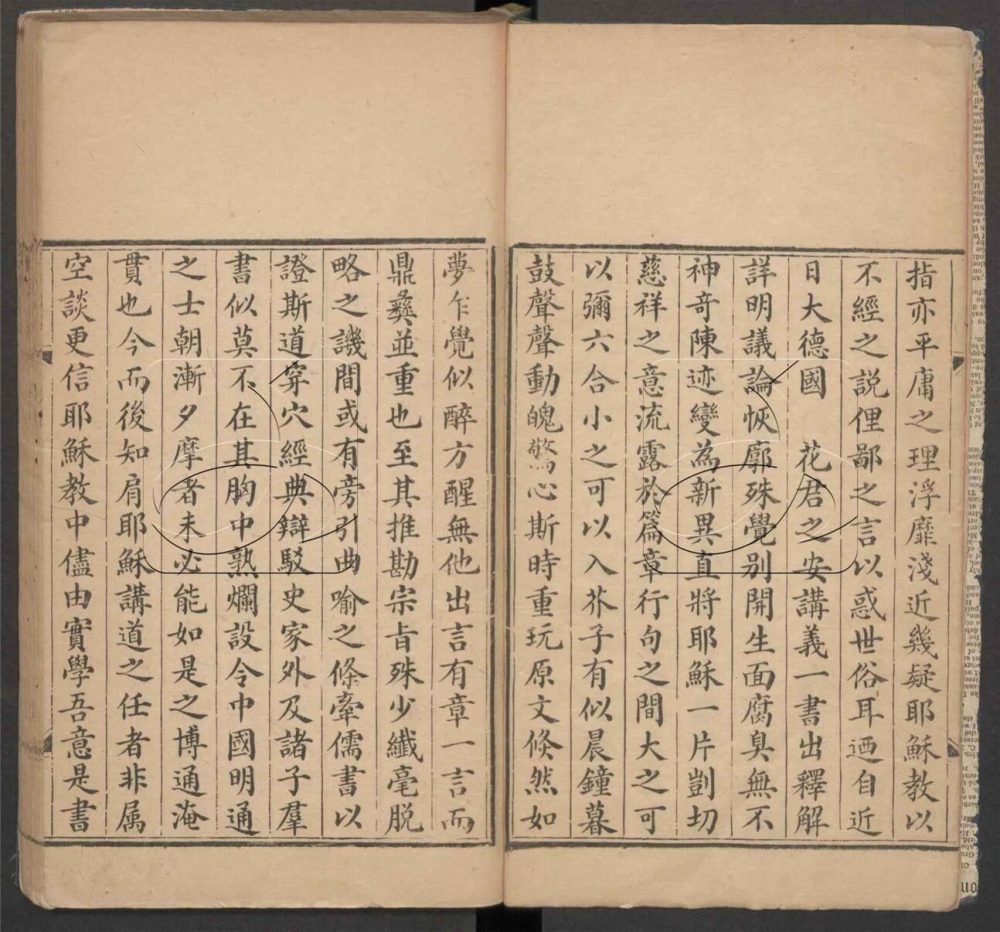 指亦平庸之理浮靡淺近幾疑耶穌教以
不經之説俚鄙之言以惑世俗耳迺自近
日大德國　花君之安講義一書出釋解
詳明議論恢廓殊覺別開生面腐臭無不
神奇陳迹變為新異直將耶穌一片剴切
慈祥之意流露於篇章行句之間大之可
以彌六合小之可以入芥子有似晨鐘暮
鼓聲聲動魄驚心斯時重玩原文倏然如
夢乍覺似醉方醒無他出言有章一言而
鼎彝並重也至其推勘宗旨殊少纖毫脱
略之譏間或有旁引曲喻之條牽儒書以
證斯道穿穴經典辯駁史家外及諸子羣
書似莫不在其胸中熟爛設令中國明通
之士朝漸夕摩者未必能如是之博通淹
貫也今而後知肩耶穌講道之任者非属
空談更信耶穌教中儘由實學吾意是書